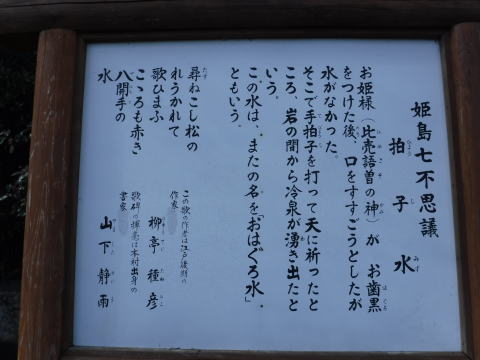 姫島七不思議
拍子水
お姫様（比売語曽の神）が　お歯黒
をつけた後、口をすすごうとしたが
水がなかった。
そこで手拍子を打って天に祈ったと
ころ、岩の間から冷泉が湧き出たと
いう。
この水は、またの名を「おはぐろ水」
ともいう。
尋ねこし松の
れうかれて
歌ひまふ
こころも赤き
八開手の
水
この歌の作者は江戸後期の
作家
柳亭種彦
歌碑の揮毫は本村出身の
書家
山下静雨